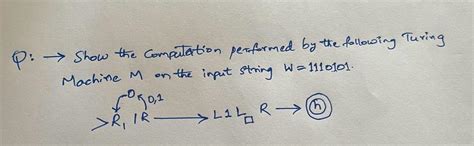 Q: → Show the Computation performed by the following Turing
Machine M on the input string W = 1110101.
0 0,1
>R, 1R → L1L□ R → h